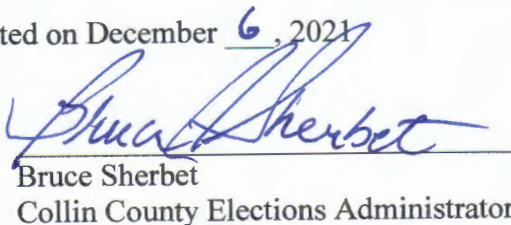 ted on December 6, 2021
Bruce Sherbet
Bruce Sherbet
Collin County Elections Administrator